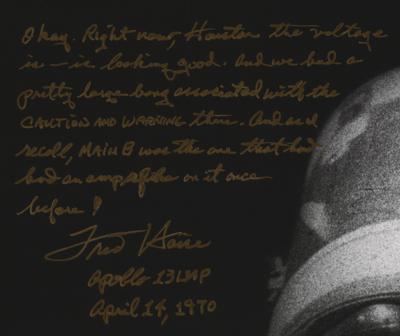 Okay. Right now, Houston the voltage
is — is looking good. And we had a
pretty large bang associated with the
CAUTION AND WARNING there. And as I
recall, MAIN B was the one that had
had an amp spike on it once
before!
Fred Haise
Apollo 13 LMP
April 14, 1970